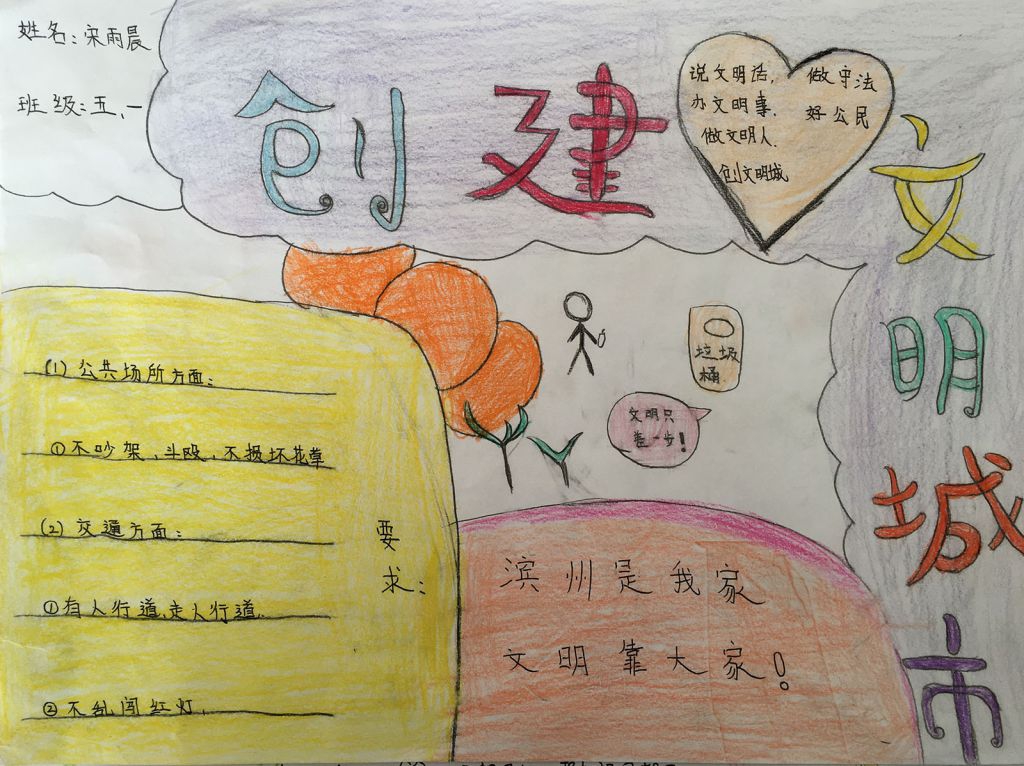 姓名:宋雨晨
班级:五、一
创建
文明城市
说文明话,
办文明事.
做文明人.
创文明城
做守法
好公民
垃圾
桶
文明只
差一步!
(1)公共场所方面:
①不吵架,斗殴,不损坏花草
(2)交通方面:
①有人行道,走人行道.
②不乱闯红灯.
要求:
滨州是我家
文明靠大家!